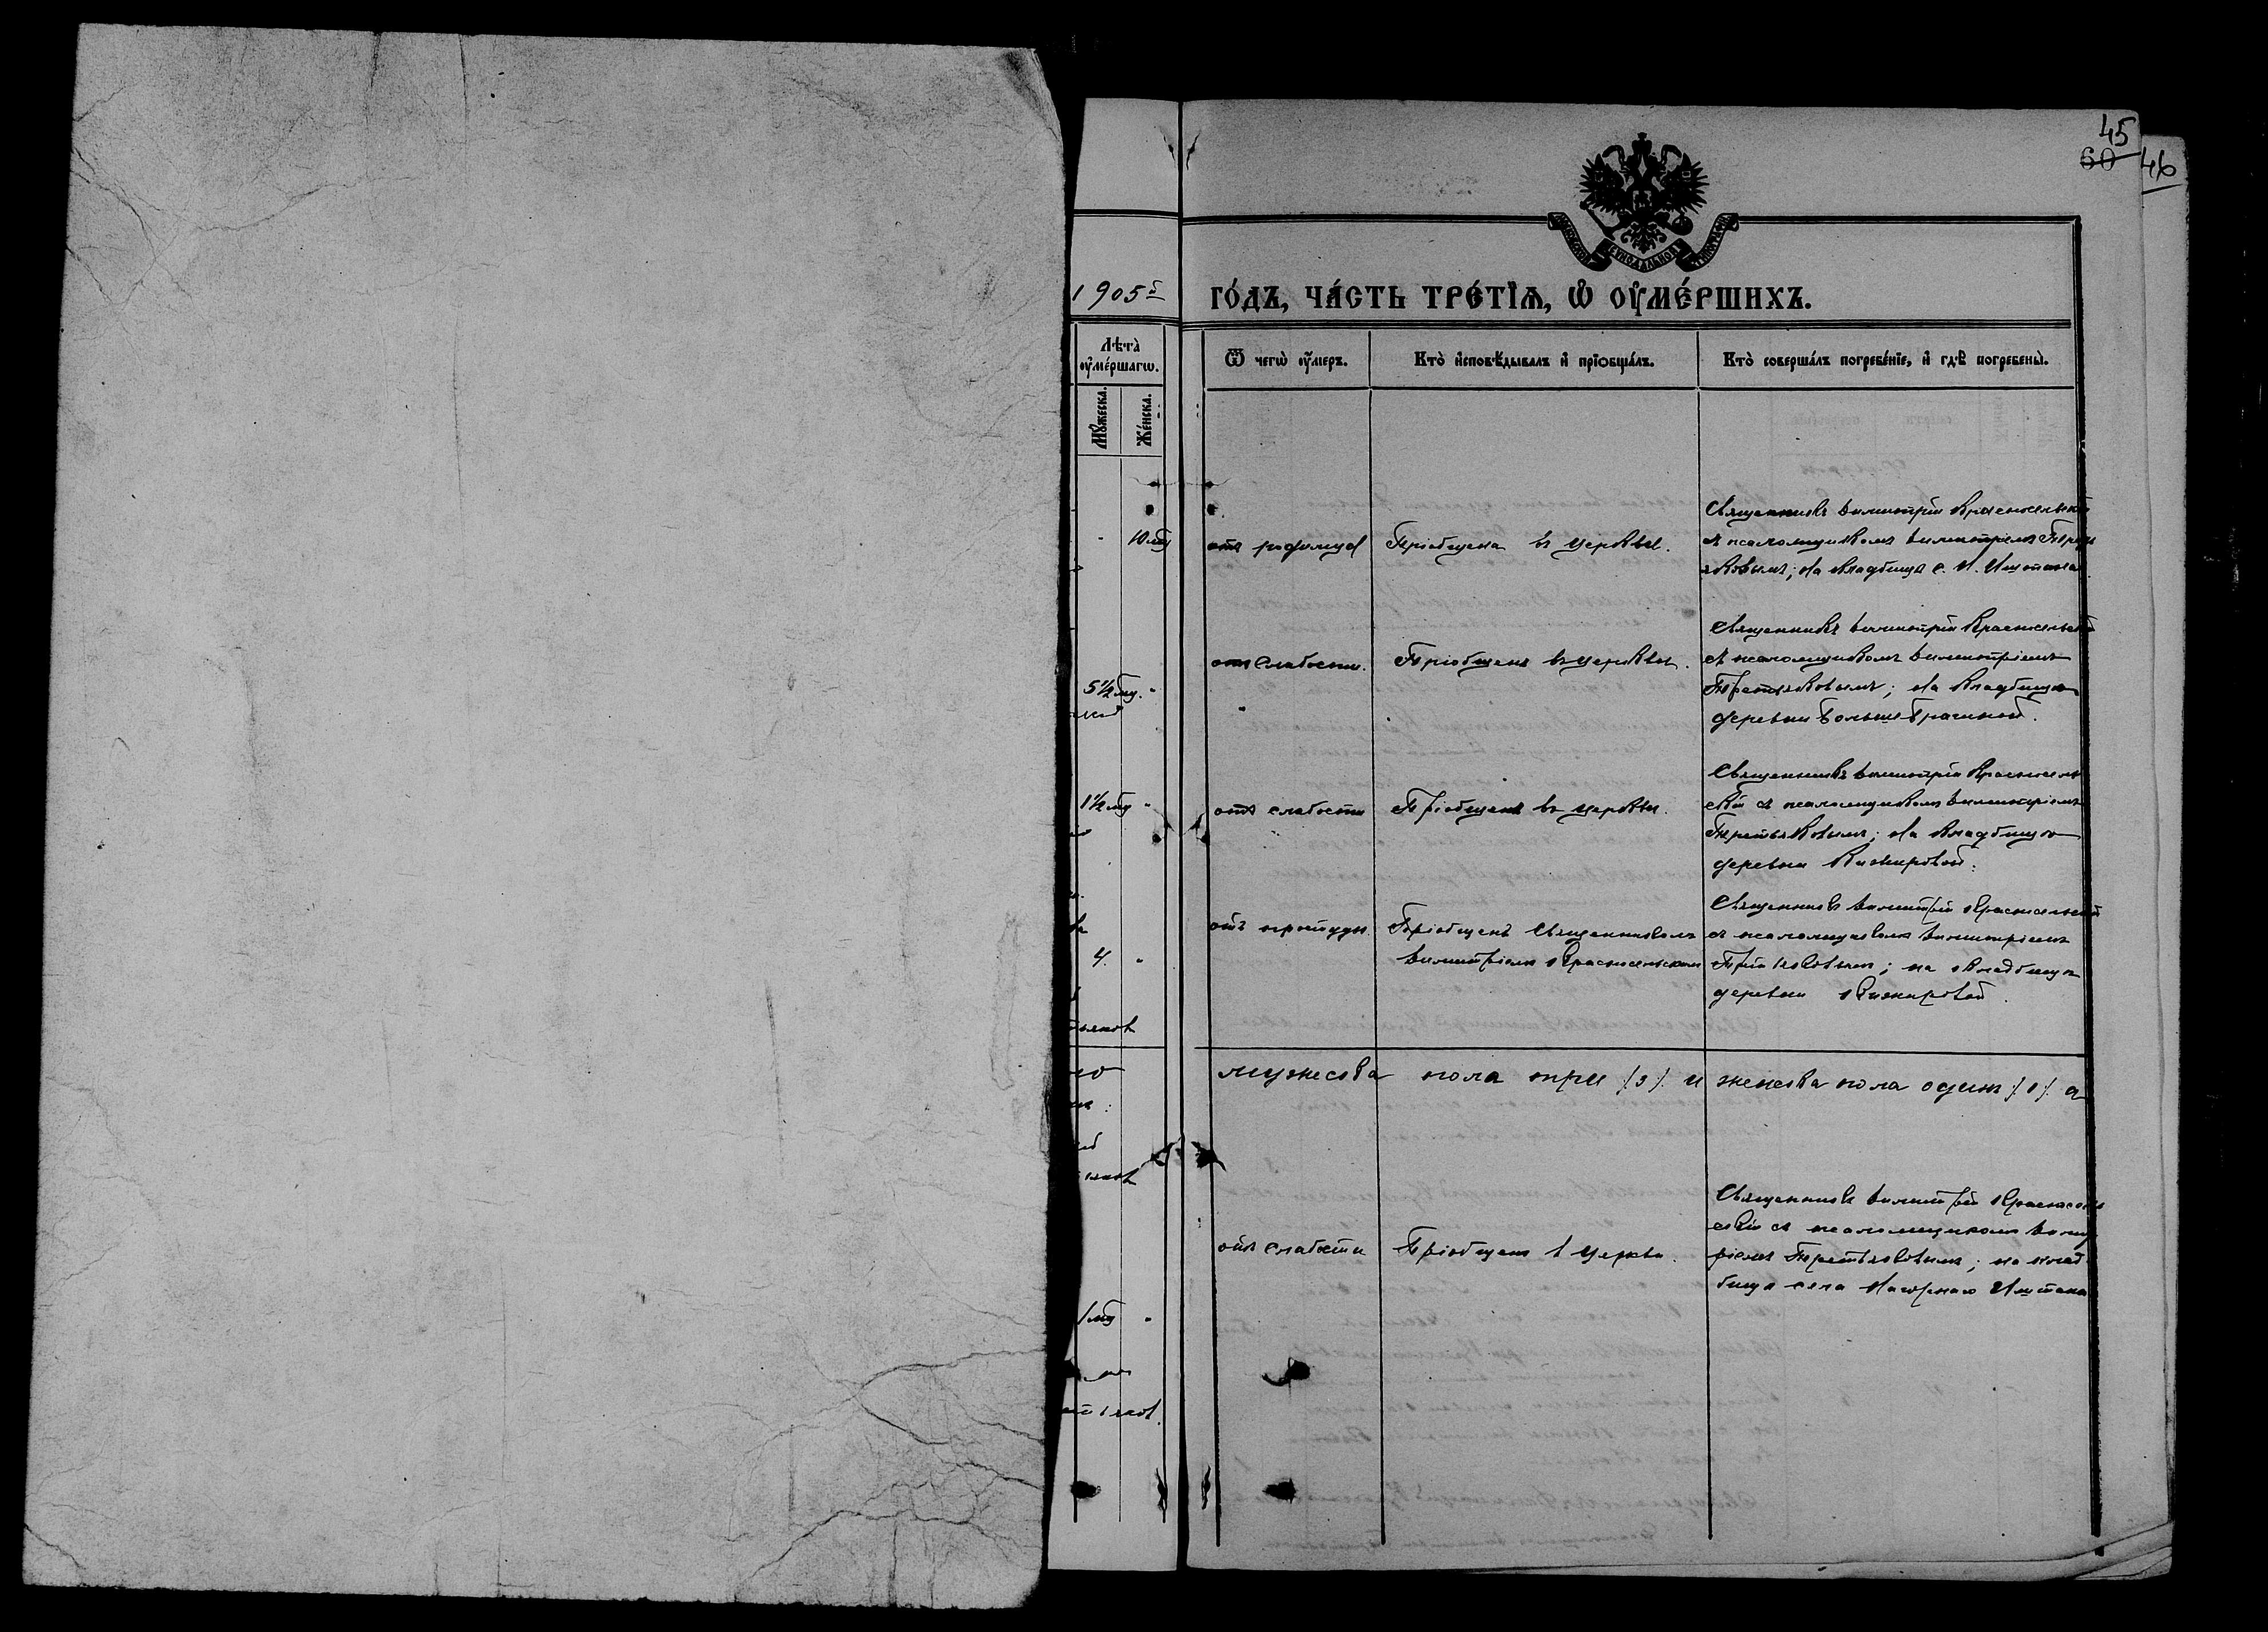 45
60
46
1905 г
ГО́ДЪ, ЧА́СТЬ ТРЕ́ТЇѦ, Ѡ҆ ОУ҆МЕ́РШИХЪ.
Лѣта̀
оу҆ме́ршагѡ.
Мꙋ́жеска.
Же́нска.
Ѿ чегѡ̀ оу҆́меръ.
Кто̀ и҆сповѣ́дывалъ и҆ прїѡбща́лъ.
Кто̀ соверша́лъ погребе́нїе, и҆ гдѣ̀ погребены̀.
10 мѣ
отъ родимца
Пріобщена въ церкви.
Священникъ Димитрій Красносельскій
съ псаломщикомъ Димитріемъ Треть
яковымъ; На кладбищѣ с. Н. Иштана
5½ мѣ. "
отъ слабости.
Пріобщенъ въ церкви.
Священникъ Димитрій Красносельскій
съ псаломщикомъ Димитріемъ
Третьяковымъ; На кладбищѣ
деревни Больше Брагиной.
1½ мѣ "
отъ слабости
Пріобщенъ въ церкви.
Священникъ Димитрій Красносель
скій съ псаломщикомъ Димитріемъ
Третьяковымъ; На кладбищѣ
деревни Кижировой.
4. "
отъ простуды.
Пріобщенъ Священникомъ
Димитріемъ Красносельскимъ
Священникъ Димитрій Красносельскій
съ псаломщикомъ Димитріемъ
Третьяковымъ; на кладбищѣ
деревни Кижировой.
мужеска пола три /3/ и женска пола одинъ /1/ а
1 мѣ "
отъ слабости
Пріобщенъ въ Церкви.
Священникъ Димитрій Красносель
скій съ псаломщикомъ Димит
ріемъ Третьяковымъ; на клад
бищѣ села Нагорнаго Иштана